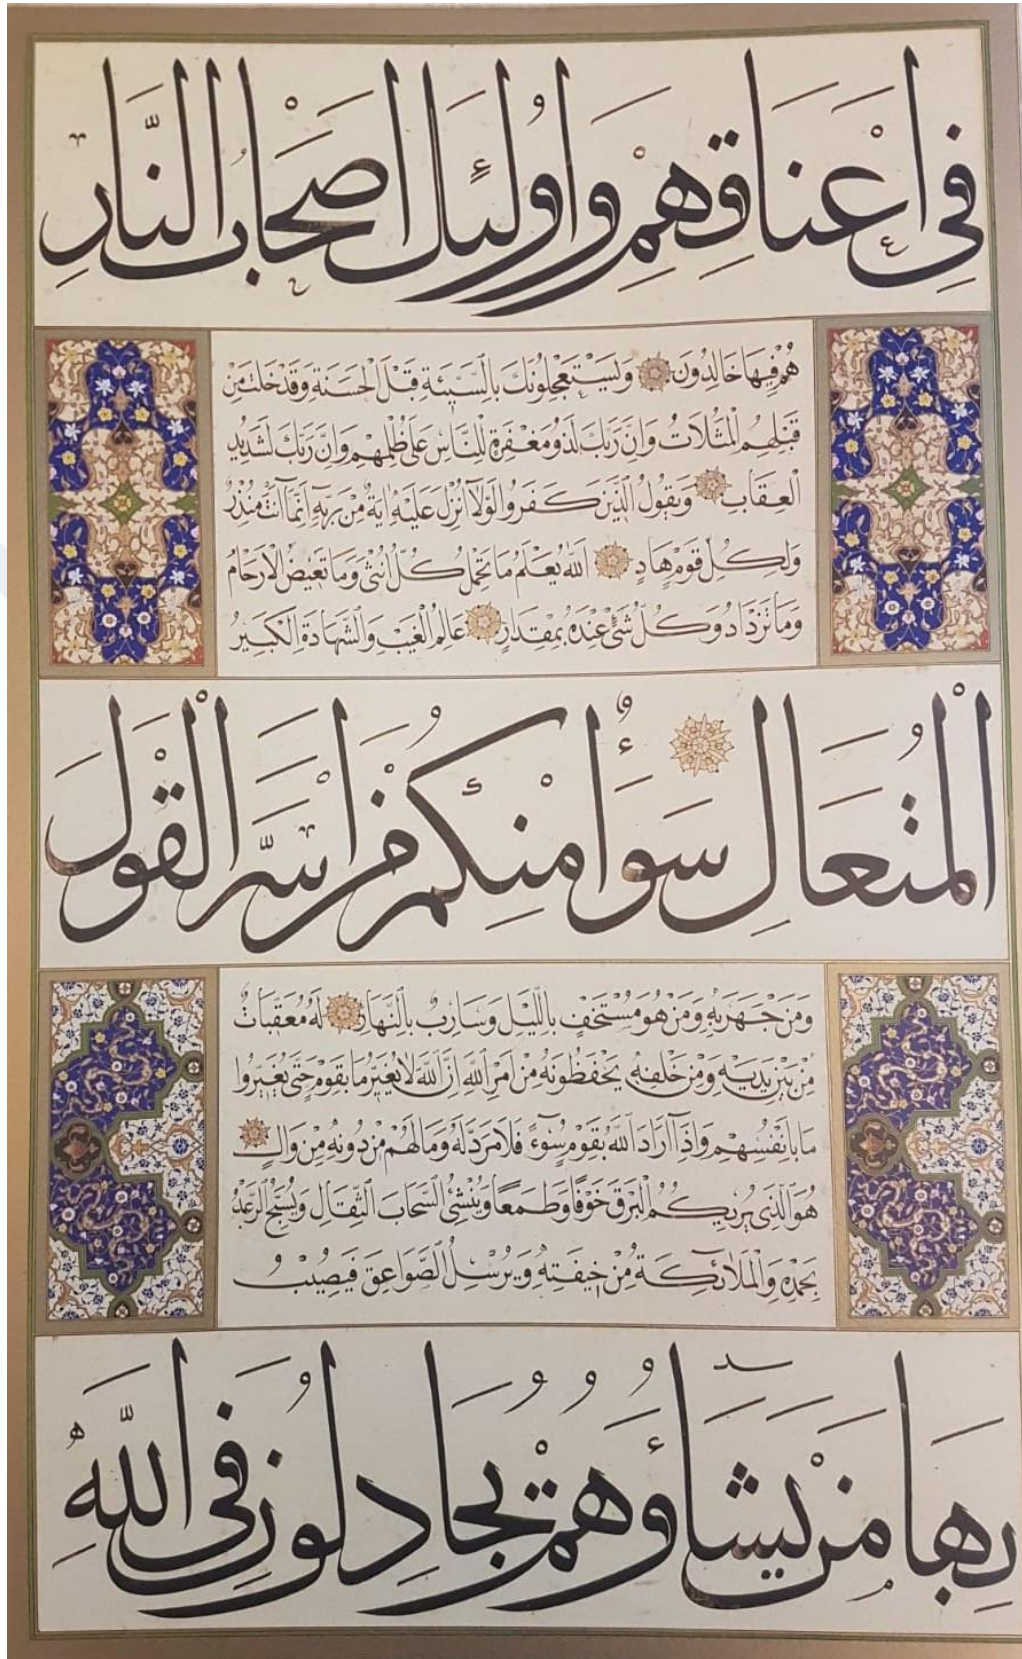 فِى اَعْنَاقِهِمْ وَاُولٰئِكَ اَصْحَابُ النَّارِ
هُمْ فِيهَا خَالِدُونَ وَيَسْتَعْجِلُونَكَ بِالسَّيِّئَةِ قَبْلَ الْحَسَنَةِ وَقَدْ خَلَتْ مِنْ
قَبْلِهِمُ الْمَثُلَاتُ وَاِنَّ رَبَّكَ لَذُو مَغْفِرَةٍ لِلنَّاسِ عَلٰى ظُلْمِهِمْ وَاِنَّ رَبَّكَ لَشَدِيدُ
الْعِقَابِ وَيَقُولُ الَّذِينَ كَفَرُوا لَوْلَا اُنْزِلَ عَلَيْهِ اٰيَةٌ مِنْ رَبِّهِ اِنَّمَا اَنْتَ مُنْذِرٌ
وَلِكُلِّ قَوْمٍ هَادٍ اَللّٰهُ يَعْلَمُ مَا تَحْمِلُ كُلُّ اُنْثٰى وَمَا تَغِيضُ الْاَرْحَامُ
وَمَا تَزْدَادُ وَكُلُّ شَىْءٍ عِنْدَهُ بِمِقْدَارٍ عَالِمُ الْغَيْبِ وَالشَّهَادَةِ الْكَبِيرُ
الْمُتَعَالِ سَوَاءٌ مِنْكُمْ مَنْ اَسَرَّ الْقَوْلَ
وَمَنْ جَهَرَ بِهِ وَمَنْ هُوَ مُسْتَخْفٍ بِالَّيْلِ وَسَارِبٌ بِالنَّهَارِ لَهُ مُعَقِّبَاتٌ
مِنْ بَيْنِ يَدَيْهِ وَمِنْ خَلْفِهِ يَحْفَظُونَهُ مِنْ اَمْرِ اللّٰهِ اِنَّ اللّٰهَ لَا يُغَيِّرُ مَا بِقَوْمٍ حَتّٰى يُغَيِّرُوا
مَا بِاَنْفُسِهِمْ وَاِذَا اَرَادَ اللّٰهُ بِقَوْمٍ سُوءً فَلَا مَرَدَّ لَهُ وَمَا لَهُمْ مِنْ دُونِهِ مِنْ وَالٍ
هُوَ الَّذِى يُرِيكُمُ الْبَرْقَ خَوْفًا وَطَمَعًا وَيُنْشِئُ السَّحَابَ الثِّقَالَ وَيُسَبِّحُ الرَّعْدُ
بِحَمْدِهِ وَالْمَلَائِكَةُ مِنْ خِيفَتِهِ وَيُرْسِلُ الصَّوَاعِقَ فَيُصِيبُ
بِهَا مَنْ يَشَاءُ وَهُمْ يُجَادِلُونَ فِى اللّٰهِ